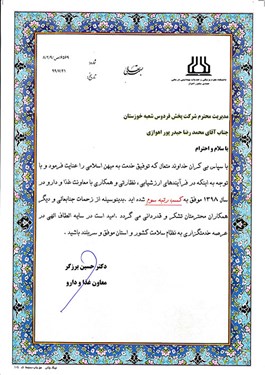 بسمه تعالی
شماره
تاریخ
۹۹/۷/۲۱
مدیریت محترم شرکت پخش فردوس شعبه خوزستان
جناب آقای محمد رضا حیدر پور اهوازی
با سلام و احترام
با سپاس بی کران خداوند متعال که توفیق خدمت به میهن اسلامی را عنایت فرمود و با
توجه به اینکه در فرآیندهای ارزشیابی ، نظارتی و همکاری با معاونت غذا و دارو در
سال ۱۳۹۸ موفق به کسب رتبه سوم شده اید .بدینوسیله از زحمات جنابعالی و دیگر
همکاران محترمتان تشکر و قدردانی می گردد .امید است در سایه الطاف الهی در
عرصه خدمتگزاری به نظام سلامت کشور و استان موفق و سربلند باشید .
دکتر حسین برزگر
معاون غذا و دارو